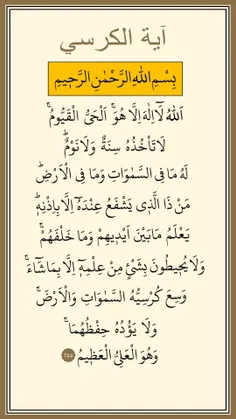 آية الكرسي
بِسْمِ اللهِ الرَّحْمٰنِ الرَّحٖيمِ
اَللهُ لَٓا اِلٰهَ اِلَّا هُوَۚ اَلْحَيُّ الْقَيُّومُۚ
لَا تَأْخُذُهُ سِنَةٌ وَلَا نَوْمٌؕ
لَهُ مَا فِي السَّمٰوَاتِ وَمَا فِي الْاَرْضِؕ
مَنْ ذَا الَّذٖي يَشْفَعُ عِنْدَهُٓ اِلَّا بِاِذْنِهٖؕ
يَعْلَمُ مَا بَيْنَ اَيْدٖيهِمْ وَمَا خَلْفَهُمْۚ
وَلَا يُحٖيطُونَ بِشَيْءٍ مِنْ عِلْمِهٖٓ اِلَّا بِمَا شَٓاءَۚ
وَسِعَ كُرْسِيُّهُ السَّمٰوَاتِ وَالْاَرْضَۚ
وَلَا يَؤُدُهُ حِفْظُهُمَاۚ
وَهُوَ الْعَلِيُّ الْعَظٖيمُ ٢٥٥